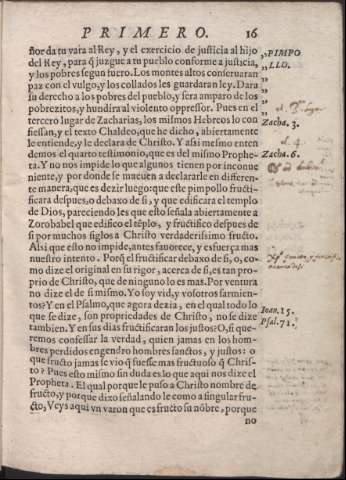 PRIMERO. 16
ñor da tu vara al Rey, y el exercicio de justicia al hijo
del Rey, para q̃ juzgue a tu pueblo conforme a justicia,
y los pobres segun fuero. Los montes altos conseruaran
paz con el vulgo, y los collados les guardaran ley. Dara
su derecho a los pobres del pueblo, y sera amparo de los
pobrezitos, y hundira al violento oppressor. Pues en el
tercero lugar de Zacharias, los mismos Hebreos lo con
fiessan, y el texto Chaldeo, que he dicho, abiertamente
le entiende, y le declara de Christo. Y assi mesmo enten
demos el quarto testimonio, que es del mismo Prophe-
ta. Y no nos impide lo que algunos tienen por inconue
niente, y por donde se mueuen a declararle en differen-
te manera, que es dezir luego: que este pimpollo fructi-
ficara despues, o debaxo de si, y que edificara el templo
de Dios, pareciendo les que esto señala abiertamente a
Zorobabel que edifico el tẽplo, y fructifico despues de
si por muchos siglos a Christo verdaderissimo fructo.
Assi que esto no impide, antes fauorece, y esfuerça mas
nuestro intento. Porq̃ el fructificar debaxo de si, o, co-
mo dize el original en su rigor, acerca de si, es tan pro-
prio de Christo, que de ninguno lo es mas. Por ventura
no dize el de si mismo. Yo soy vid, y vosotros sarmien-
tos? Y en el Psalmo, que agora dezia, en el qual todo lo
que se dize, son propriedades de Christo, no se dize
tambien. Y en sus dias fructificaran los justos? O, si que-
remos confessar la verdad, quien jamas en los hom-
bres perdidos engendro hombres sanctos, y justos: o
que fructo jamas se vio q̃ fuesse mas fructuoso q̃ Chris-
to? Pues esto mismo sin duda es lo que aqui nos dize el
Propheta. El qual porque le puso a Christo nombre de
fructo, y porque dixo señalando le como a singular fru-
cto, Veys aqui vn varon que es fructo su nõbre, porque
no
„PIMPO
„LLO.
„
„
„
Zacha. 3.
Zacha. 6.
Ioan. 15.
Psal. 71.